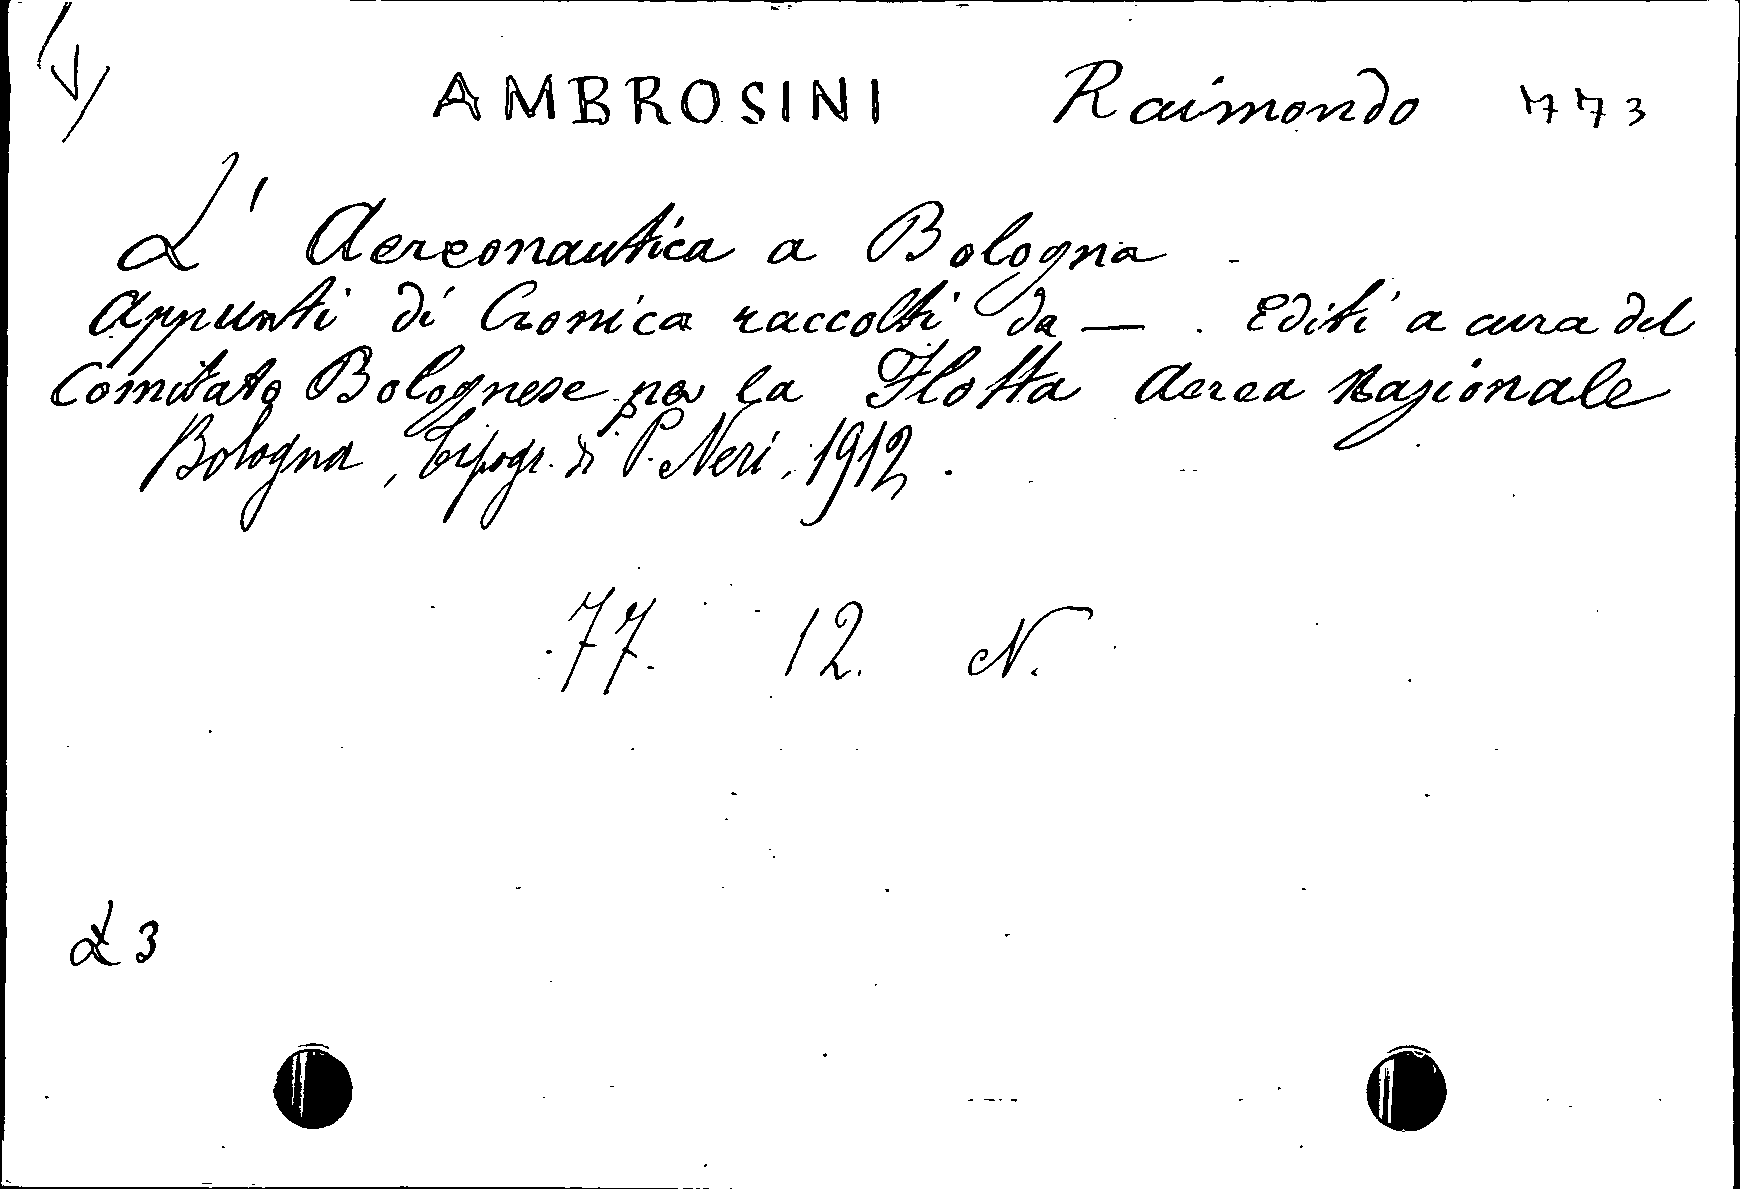 AMBROSINI Raimondo 773
L' Aereonautica a Bologna
Appunti di Cronica raccolti da — . Editi a cura del
Comitato Bolognese per la Flotta Aerea Nazionale
Bologna, Tipogr. di P. Neri, 1912.
77. 12. N.
L 3